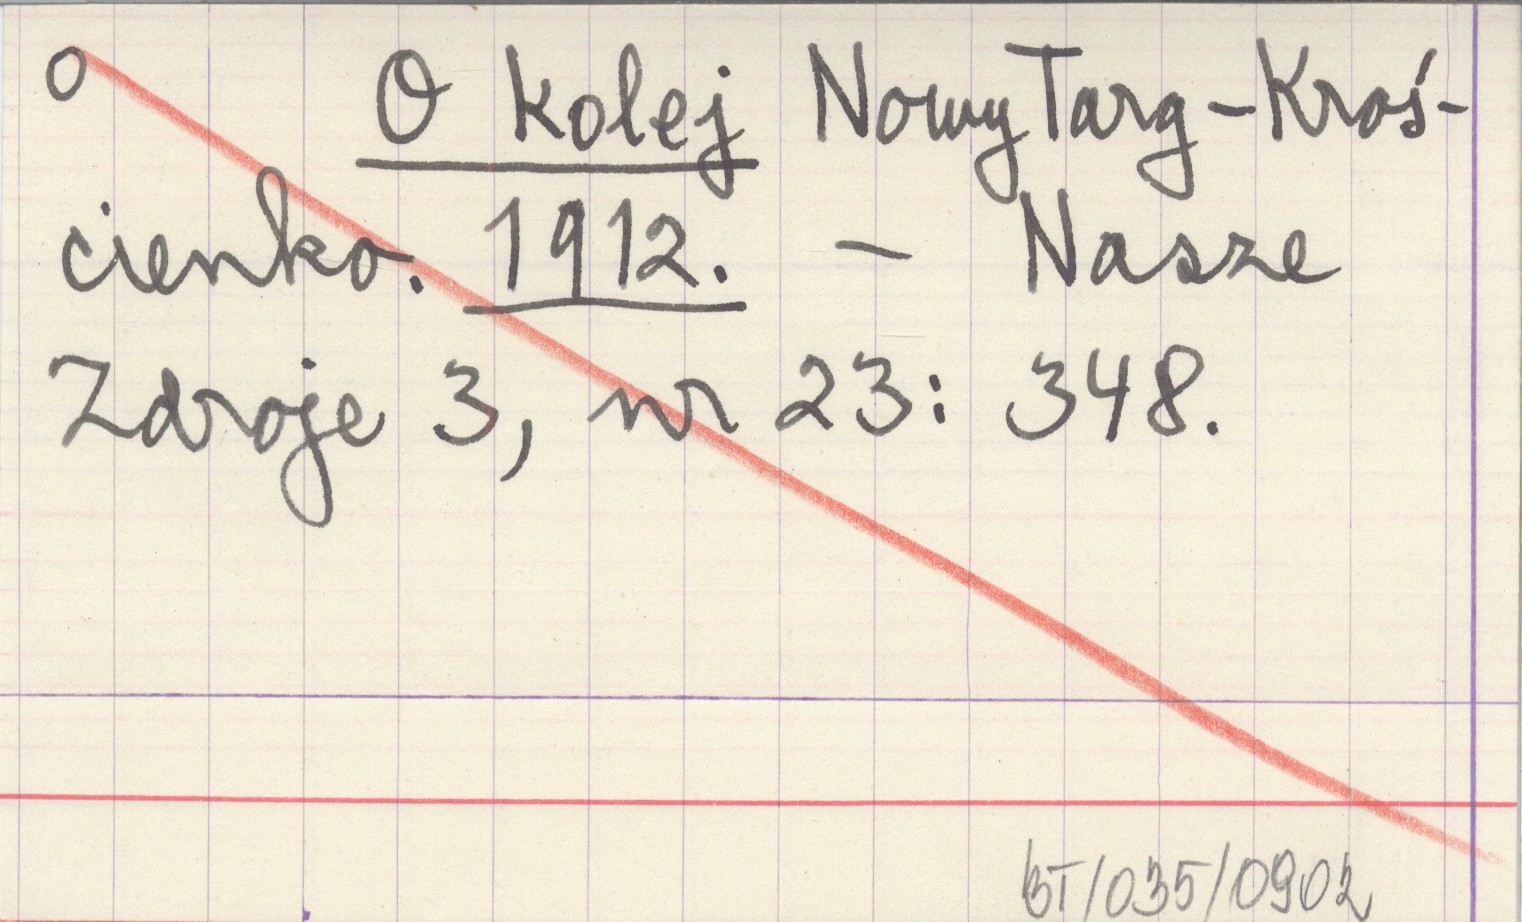 O O kolej Nowy Targ-Kroś-
cienko. 1912. - Nasze
Zdroje 3, nr 23: 348.
BT/035/0902